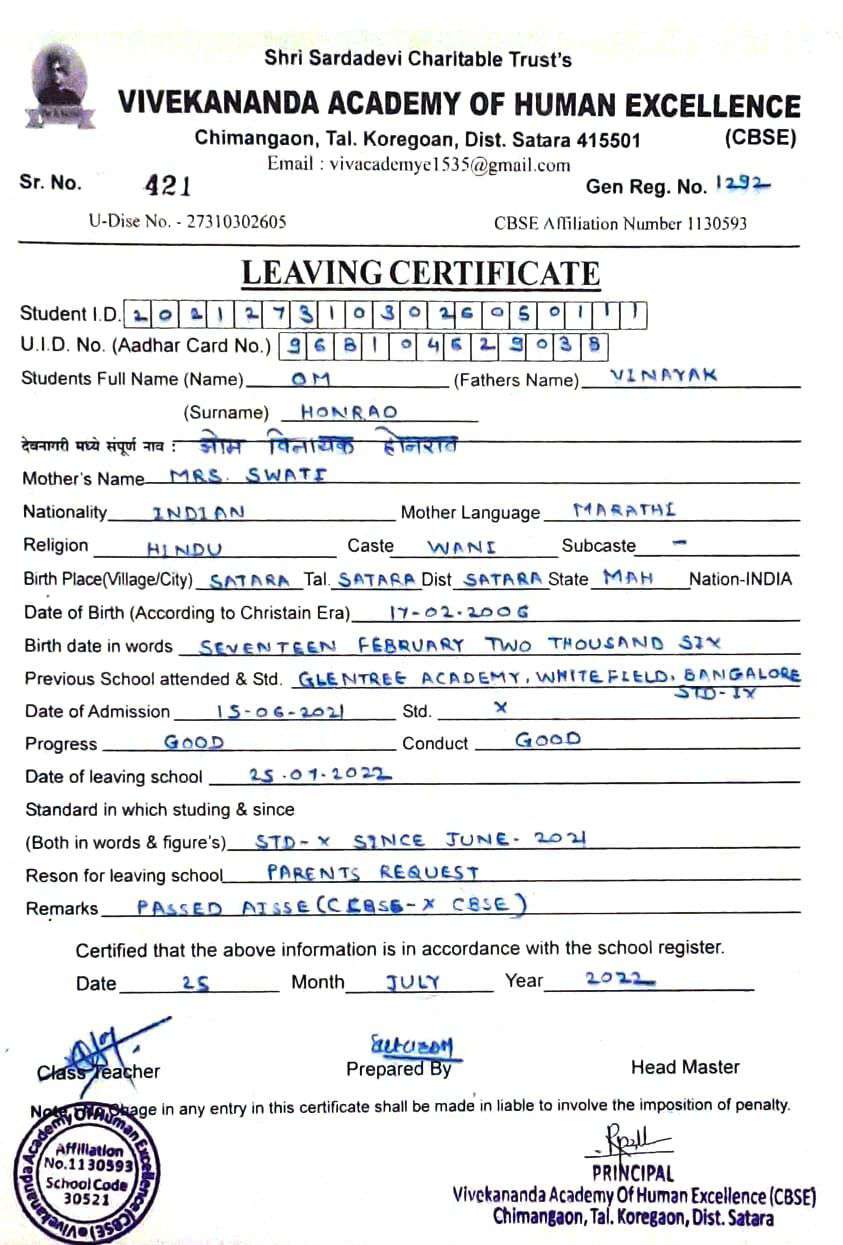 Shri Sardadevi Charitable Trust's
VIVEKANANDA ACADEMY OF HUMAN EXCELLENCE
Chimangaon, Tal. Koregoan, Dist. Satara 415501 (CBSE)
Email : vivacademye1535@gmail.com
Sr. No. 421 Gen Reg. No. 1292
U-Dise No. - 27310302605 CBSE Affiliation Number 1130593
LEAVING CERTIFICATE
Student I.D. 2021273103026050111
U.I.D. No. (Aadhar Card No.) 968104629038
Students Full Name (Name) OM (Fathers Name) VINAYAK
(Surname) HONRAO
देवनागरी मध्ये संपूर्ण नाव : ओम विनायक होनराव
Mother's Name MRS. SWATI
Nationality INDIAN Mother Language MARATHI
Religion HINDU Caste WANI Subcaste -
Birth Place(Village/City) SATARA Tal. SATARA Dist SATARA State MAH Nation-INDIA
Date of Birth (According to Christain Era) 17-02-2006
Birth date in words SEVENTEEN FEBRUARY TWO THOUSAND SIX
Previous School attended & Std. GLENTREE ACADEMY, WHITEFIELD, BANGALORE
STD-IX
Date of Admission 15-06-2021 Std. X
Progress GOOD Conduct GOOD
Date of leaving school 25.07.2022
Standard in which studing & since
(Both in words & figure's) STD-X SINCE JUNE-2021
Reson for leaving school PARENTS REQUEST
Remarks PASSED AISSE (X CBSE)
Certified that the above information is in accordance with the school register.
Date 25 Month JULY Year 2022
Class Teacher Prepared By Head Master
Note in any entry in this certificate shall be made in liable to involve the imposition of penalty.
Vivekananda Academy Of Human Excellence (CBSE)
Affiliation
No.1130593
School Code
30521
PRINCIPAL
Vivekananda Academy Of Human Excellence (CBSE)
Chimangaon, Tal. Koregaon, Dist. Satara